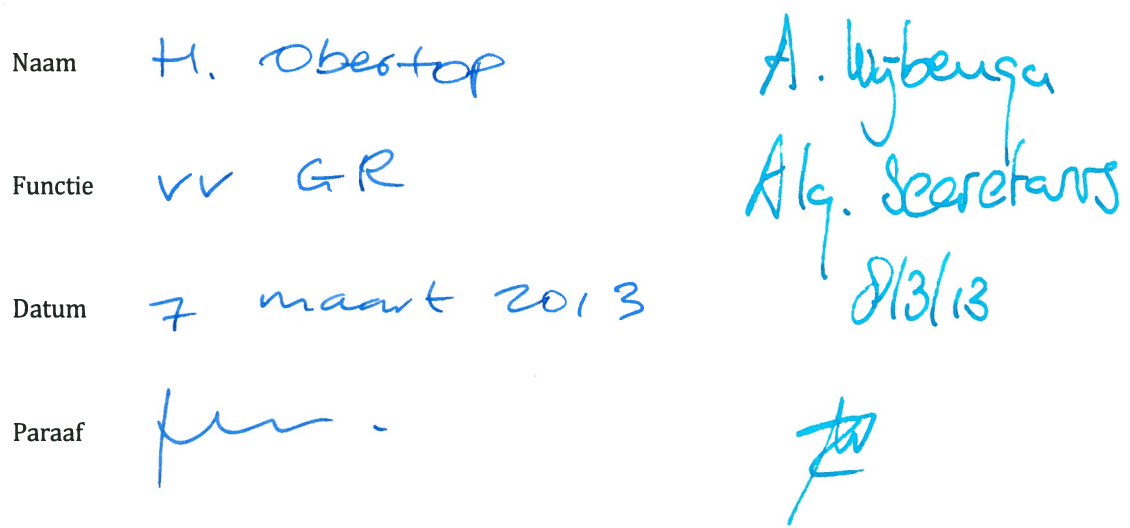 Naam H. Obertop A. Wijbenga
Functie VV GR Alg. Secretaris
Datum 7 maart 2013 8/3/13
Paraaf